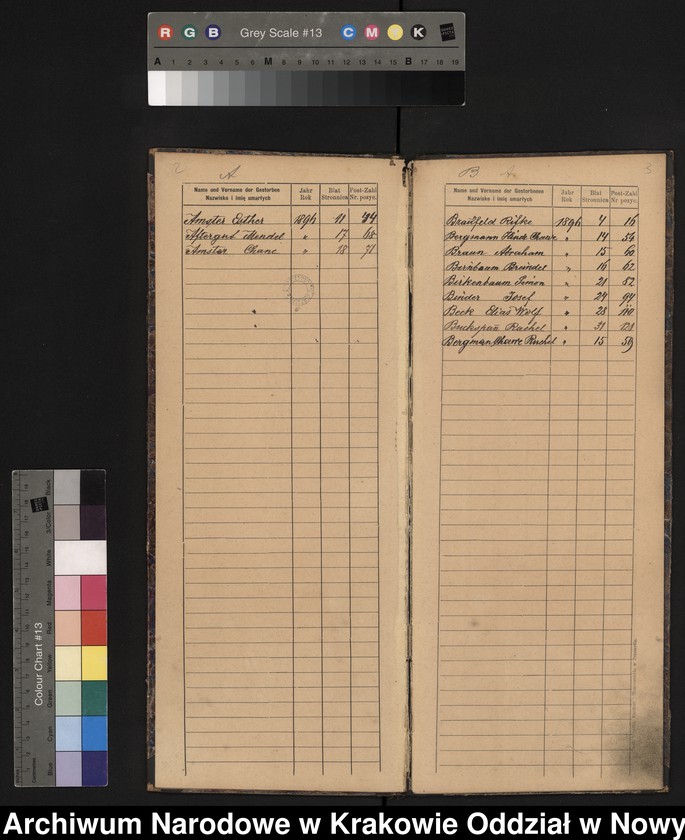 R G B Grey Scale #13 C M Y K
A 1 2 3 4 5 6 M 8 9 10 11 12 13 14 15 B 17 18 19
2 A
Name und Vorname der Gestorben Jahr Blat Post-Zahl
Nazwisko i imię umarłych Rok Stronnica Nr. posyc.
Amster Esther 1896 11 44
Aftergut Mendel " 17 68
Amster Chane " 18 71
B 3
Name und Vorname der Gestorbenen Jahr Blat Post-Zahl
Nazwisko i imię umarłych Rok Stronnica Nr. posyc.
Brailfeld Rifke 1896 7 16
Bergmann Chawe " 14 54
Braun Abraham " 15 60
Bernbaum Breindel " 16 62
Birkenbaum Simon " 21 82
Binder Josef " 24 94
Beck Elias Wolf " 28 110
Buchspan Rachel " 31
Bergman Chawe Ruchel " 15 59
Colour Chart #13
Blue Cyan Green Yellow Red Magenta White 3/Color Black
Archiwum Narodowe w Krakowie Oddział w Nowy